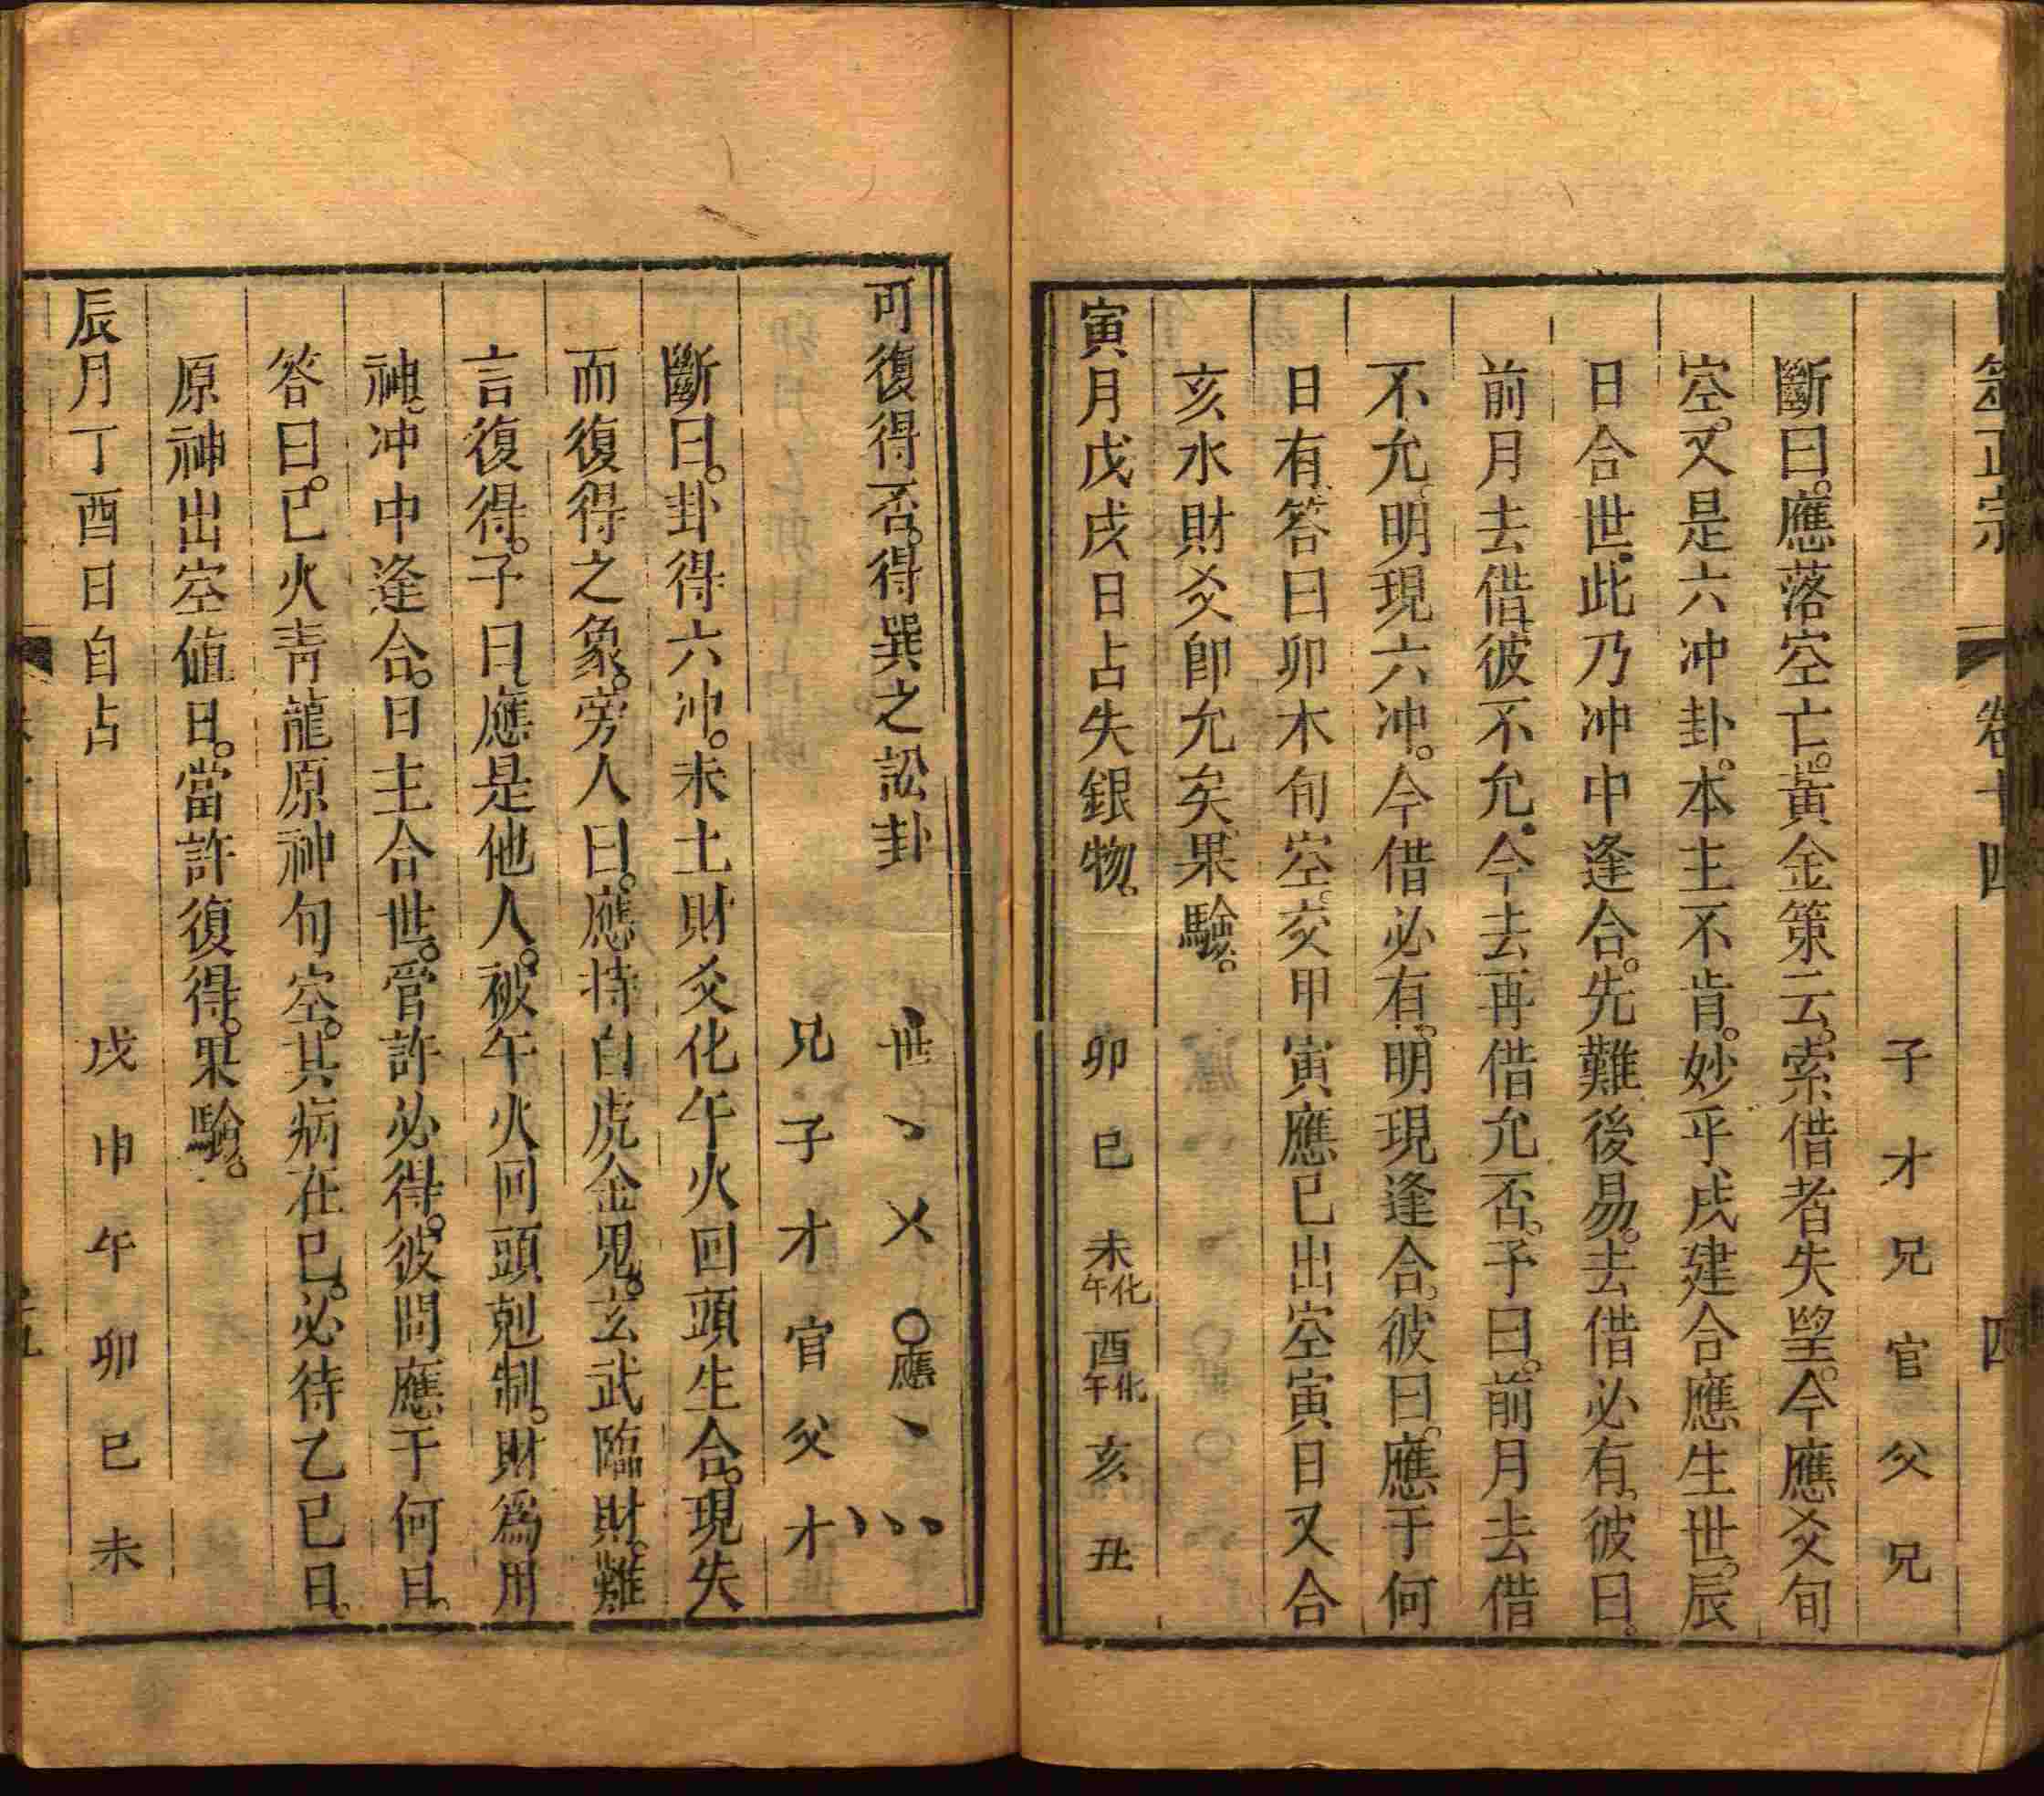 筮正宗 卷十四 四
子 才 兄 官 父 兄
斷曰。應落空亡。黃金策云。索借者失望。今應爻旬
空。又是六冲卦。本主不肯。妙乎戌建合應生世。辰
日合世。此乃冲中逢合。先難後易。去借必有。彼曰。
前月去借。彼不允。今去再借允否。予曰。前月去借
不允。明現六冲。今借必有。明現逢合。彼曰。應于何
日有。答曰卯木旬空。交甲寅應巳出空寅日又合
亥水財爻即允矣。果驗。
寅月戊戌日占失銀物。 卯 巳 未化午 酉化午 亥 丑
可復得否。得巽之訟卦 丶世 丶 乂 〇應 丶 丶丶
兄 子 才 官 父 才
斷曰。卦得六冲。未土財爻化午火回頭生合。現失
而復得之象。旁人曰。應持白虎金鬼。玄武臨財。難
言復得。子曰。應是他人。被午火回頭剋制。財爲用
神。冲中逢合。日主合世。管許必得。彼問應于何日。
答曰。巳火青龍原神旬空。其病在巳。必待乙巳日。
原神出空値日。當許復得。果驗。
辰月丁酉日自占 戌 申 午 卯 巳 未